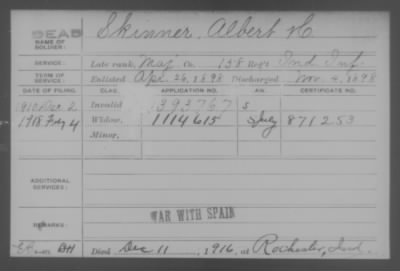 DEAD Skinner, Albert H
NAME OF SOLDIER:
SERVICE: Late rank, Maj Co. 158 Reg't Ind Inf.
TERM OF SERVICE: Enlisted Apr. 26, 1898 Discharged Nov. 4, 1898
DATE OF FILING. CLASS. APPLICATION NO. CERTIFICATE NO.
1910 Dec 2 Invalid 1393767 S
1918 4 Widow, 1114615 July 871253
Minor,
ADDITIONAL SERVICES:
REMARKS: WAR WITH SPAIN
BH Died Dec 11, 1916, at Rochester, Ind.